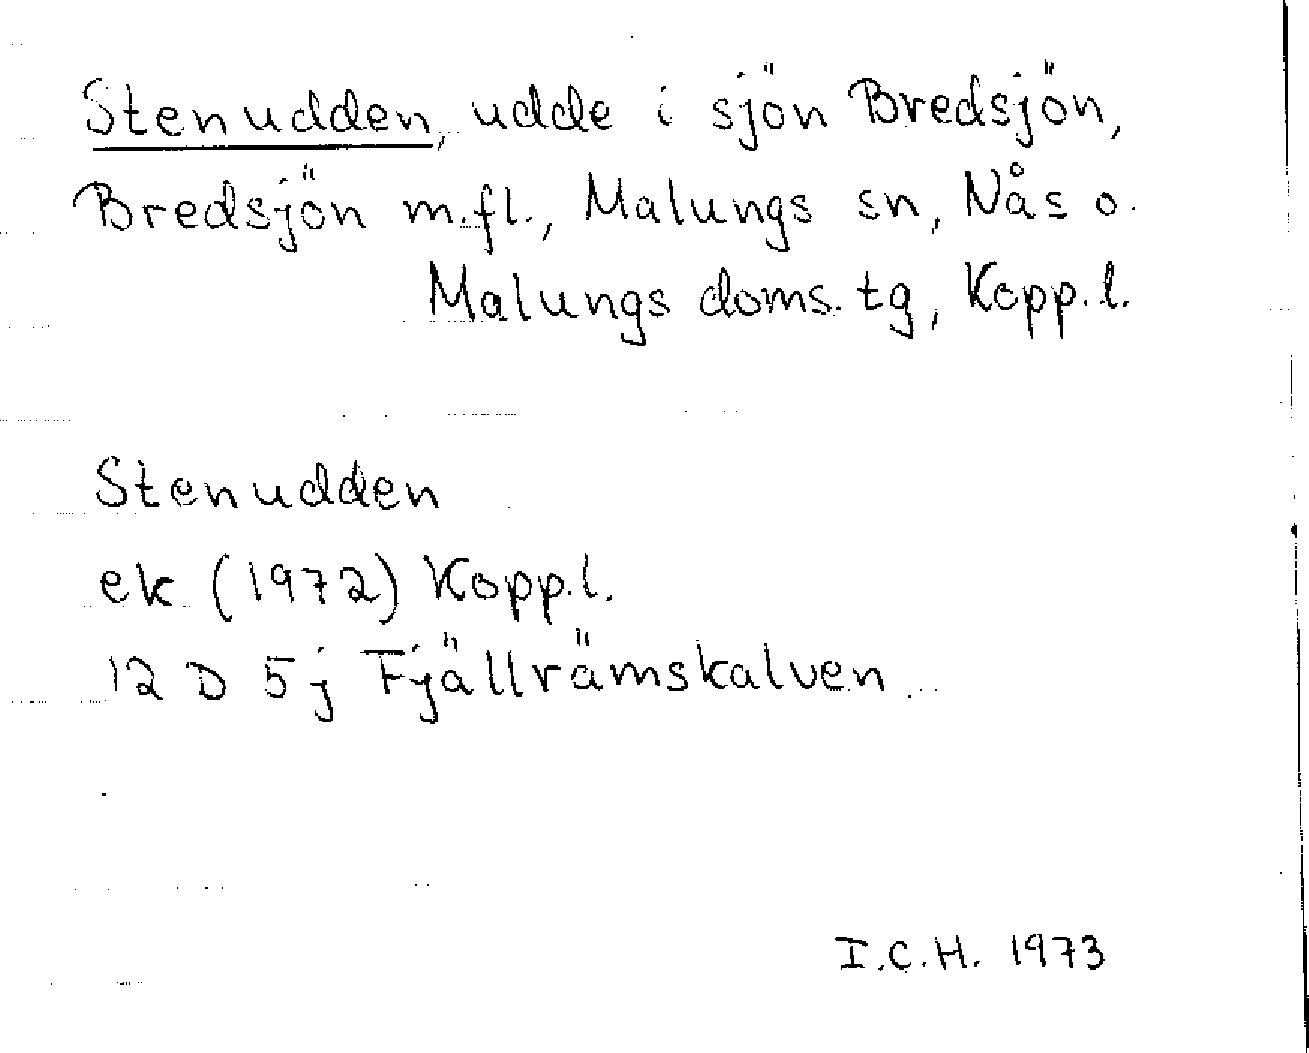 Stenudden, udde i sjön Bredsjön,
Bredsjön m.fl., Malungs sn, Nås o.
Malungs doms.tg, Kopp.l.
Stenudden
ek (1972) Kopp.l.
12 D 5j Fjällrämskalven
I.C.H. 1973